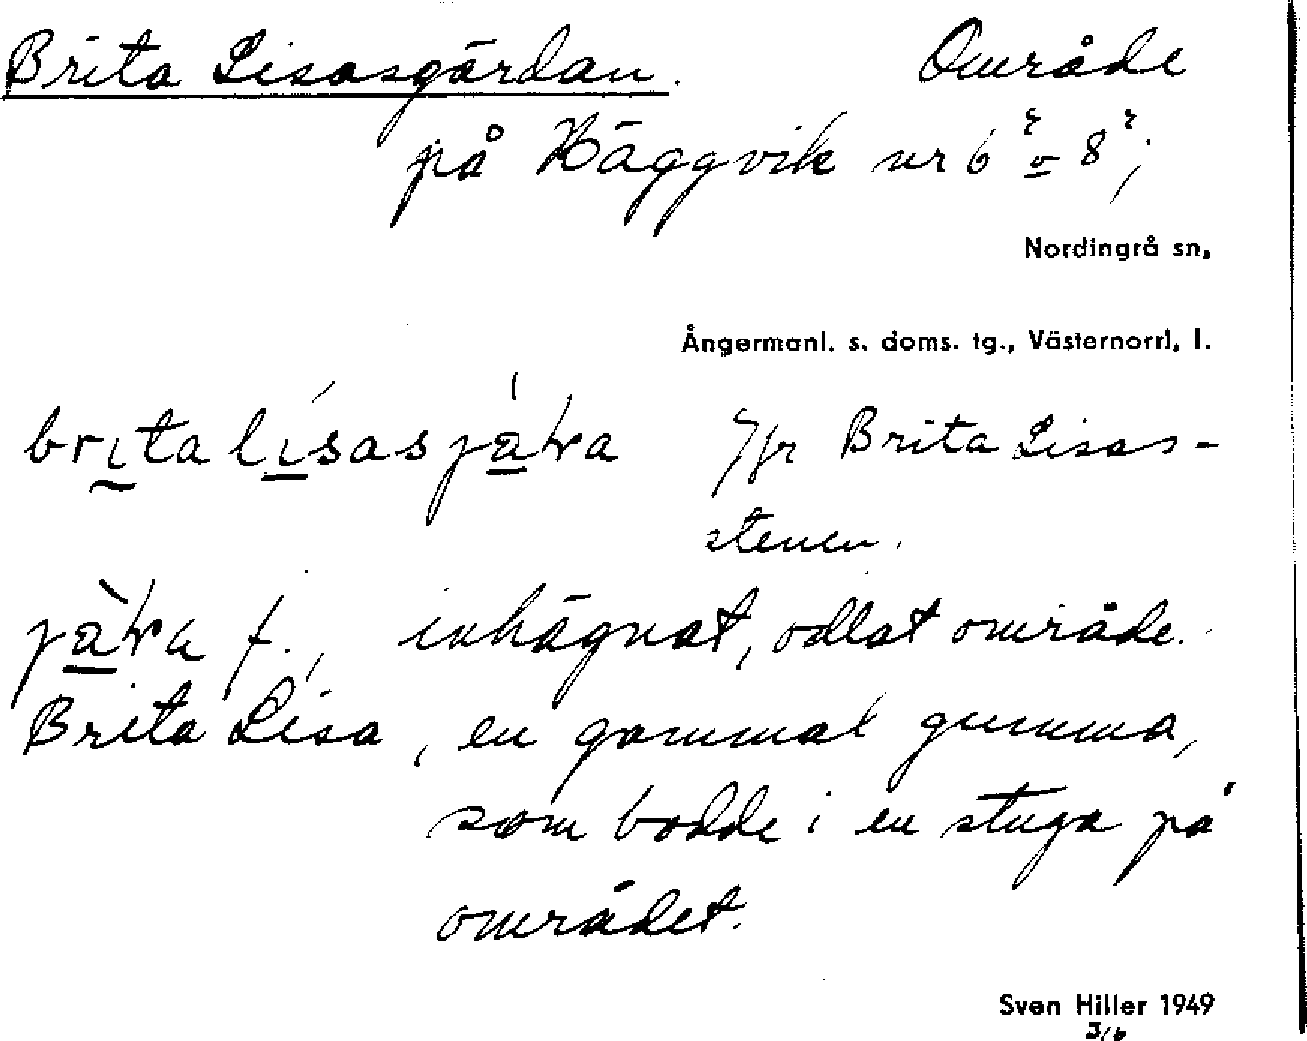 Brita Lisasgärdan. Område
på Häggvik nr 6² o 8²;
Nordingrå sn,
Ångermanl. s. doms. tg., Västernorrl. l.
brita lisas
Jfr Brita Lisas-
stenen.
f., inhägnat, odlat område.
Brita Lisa, en gammal gumma,
som bodde i en stuga på
området.
Sven Hiller 1949
3/6